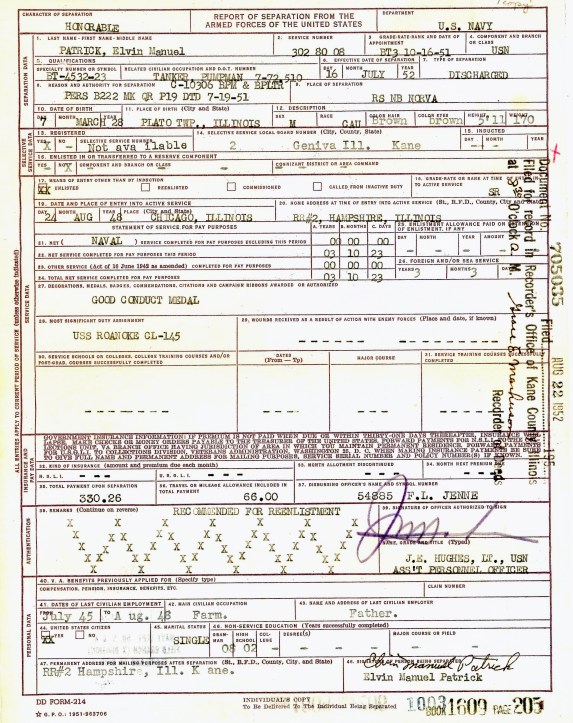 CHARACTER OF SEPARATION
HONORABLE
REPORT OF SEPARATION FROM THE
ARMED FORCES OF THE UNITED STATES
DEPARTMENT
U.S. NAVY
1. LAST NAME - FIRST NAME - MIDDLE NAME
PATRICK, Elvin Manuel
2. SERVICE NUMBER
302 80 08
3. GRADE-RATE-RANK AND DATE OF APPOINTMENT
BT3 10-16-51
4. COMPONENT AND BRANCH OR CLASS
USN
5. QUALIFICATIONS
SPECIALTY NUMBER OR SYMBOL
BT-4532-23
RELATED CIVILIAN OCCUPATION AND D.O.T. NUMBER
TANKER PUMPMAN 7-72.510
6. EFFECTIVE DATE OF SEPARATION
DAY MONTH YEAR
16 JULY 52
7. TYPE OF SEPARATION
DISCHARGED
8. REASON AND AUTHORITY FOR SEPARATION
C-10306 BPM & BPLTR
PERS B222 MK QR P19 DTD 7-19-51
9. PLACE OF SEPARATION
RS NB NORVA
10. DATE OF BIRTH
7 MARCH 28
11. PLACE OF BIRTH (City and State)
PLATO TWP., ILLINOIS
12. DESCRIPTION
SEX RACE COLOR HAIR COLOR EYES HEIGHT WEIGHT
M CAU Brown brown 5'11 170
SELECTIVE SERVICE DATA
13. REGISTERED
YES NO
X
SELECTIVE SERVICE NUMBER
Not available
14. SELECTIVE SERVICE LOCAL BOARD NUMBER (City, County, State)
2. Geniva Ill. Kane
15. INDUCTED
DAY MONTH YEAR
16. ENLISTED IN OR TRANSFERRED TO A RESERVE COMPONENT
YES NO COMPONENT AND BRANCH OR CLASS
X
COGNIZANT DISTRICT OR AREA COMMAND
17. MEANS OF ENTRY OTHER THAN BY INDUCTION
XX ENLISTED REENLISTED COMMISSIONED CALLED FROM INACTIVE DUTY
18. GRADE-RATE OR RANK AT TIME OF ENTRY INTO ACTIVE SERVICE
SR
19. DATE AND PLACE OF ENTRY INTO ACTIVE SERVICE
DAY MONTH YEAR PLACE (City and State)
24 AUG 48 CHICAGO, ILLINOIS
20. HOME ADDRESS AT TIME OF ENTRY INTO ACTIVE SERVICE (St., R.F.D., County, City and State)
RR#2, HAMPSHIRE, ILLINOIS
STATEMENT OF SERVICE FOR PAY PURPOSES
A. YEARS B. MONTHS C. DAYS
21. NET (NAVAL) SERVICE COMPLETED FOR PAY PURPOSES EXCLUDING THIS PERIOD
00 00 00
22. NET SERVICE COMPLETED FOR PAY PURPOSES THIS PERIOD
03 10 23
23. OTHER SERVICE (Act of 16 June 1942 as amended) COMPLETED FOR PAY PURPOSES
00 00 00
24. TOTAL NET SERVICE COMPLETED FOR PAY PURPOSES
03 10 23
25. ENLISTMENT ALLOWANCE PAID ON EXTENSION OF ENLISTMENT, IF ANY
DAY MONTH YEAR AMOUNT
26. FOREIGN AND/OR SEA SERVICE
YEARS 3 MONTHS 3 DAYS
SERVICE DATA
27. DECORATIONS, MEDALS, BADGES, COMMENDATIONS, CITATIONS AND CAMPAIGN RIBBONS AWARDED OR AUTHORIZED
GOOD CONDUCT MEDAL
28. MOST SIGNIFICANT DUTY ASSIGNMENT
USS ROANOKE CL-145
29. WOUNDS RECEIVED AS A RESULT OF ACTION WITH ENEMY FORCES (Place and date, if known)
30. SERVICE SCHOOLS OR COLLEGES, COLLEGE TRAINING COURSES AND/OR POST-GRAD. COURSES SUCCESSFULLY COMPLETED
DATES (From - To)
MAJOR COURSE
31. SERVICE TRAINING COURSES SUCCESSFULLY COMPLETED
GOVERNMENT INSURANCE INFORMATION:
INSURANCE AND PAY DATA
32. KIND OF INSURANCE (amount and premium due each month)
33. MONTH ALLOTMENT DISCONTINUED
34. MONTH NEXT PREMIUM DUE
35. TOTAL PAYMENT UPON SEPARATION
330.26
36. TRAVEL OR MILEAGE ALLOWANCE INCLUDED IN TOTAL PAYMENT
66.00
37. DISBURSING OFFICER'S NAME AND SYMBOL NUMBER
54885 F.L. JENNE
38. REMARKS (Continue on reverse)
RECOMMENDED FOR REENLISTMENT
39. SIGNATURE OF OFFICER AUTHORIZED TO SIGN
NAME, GRADE AND TITLE (Typed)
J.E. HUGHES, LT., USN
ASS'T PERSONNEL OFFICER
AUTHENTICATION
40. V. A. BENEFITS PREVIOUSLY APPLIED FOR (Specify type)
COMPENSATION, PENSION, INSURANCE, BENEFITS, ETC.
CLAIM NUMBER
PERSONAL DATA
41. DATES OF LAST CIVILIAN EMPLOYMENT
FROM July 45 TO Aug. 48
42. MAIN CIVILIAN OCCUPATION
Farm.
43. NAME AND ADDRESS OF LAST CIVILIAN EMPLOYER
Father.
44. UNITED STATES CITIZEN
XX YES NO
45. MARITAL STATUS
SINGLE
46. NON-SERVICE EDUCATION (Years successfully completed)
GRAMMAR HIGH SCHOOL COLLEGE DEGREE(S)
08 02
MAJOR COURSE OR FIELD
47. PERMANENT ADDRESS FOR MAILING PURPOSES AFTER SEPARATION (St., R.F.D., County, City and State)
RR#2 Hampshire, Ill. Kane.
48. SIGNATURE OF PERSON BEING SEPARATED
Elvin Manuel Patrick
Elvin Manuel Patrick
DD FORM-214
☆ G. P. O.: 1951-953708
INDIVIDUAL'S COPY
To Be Delivered To The Individual Being Separated
BOOK 1609 PAGE 205
Document No. 705035
Filed for record in Recorder's Office of Kane County, Illinois
Filed AUG 22 1952
at o'clock A. M.
Recorder of Deeds